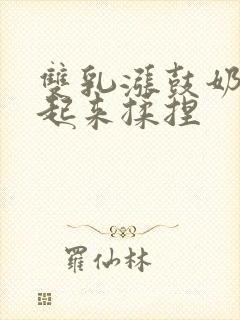 雙乳漲鼓奶
起来揉捏
羅仙林